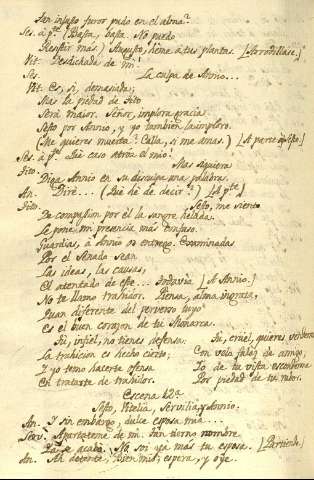 Tan injusto furor pudo en el alma?
Ses. à p.te (Basta, basta. No puedo
Resistir más.) Augusto, tiene a tus plantas. [Arrodillase.]
Vit. Desdichada de mi!
Ses. La culpa de Annio...
Vit. Es, si, demasiada;
Mas la piedad de Tito
Será maior. Señor, implora gracia
Sesto por Annio, y yo tambien la imploro.
(Me quieres muerta? Calla, si me amas.) [A parte à Sesto.]
Ses. à p.te Qué caso atroz el mio!
Tito. Mas siquiera
Diga Annio en su disculpa una palabra.
An. Diré... (Qué he de decir?) [A p.te]
Tito. Sesto, me siento
De compassion por él la sangre helada.
Le pone mi presencia mas confuso.
Guardias, à Annio os entrego. Examinadas
Por el Senado sean
Las ideas, las causas,
El atentado de este... Todavia [A Annio.]
No te llamo traidor. Piensa, alma ingrata,
Quan diferente del perverso tuyo
Es el buen corazon de tu Monarca.
Tú, infiel, no tienes defensa. Tú, cruel, quieres
La traicion es hecho cierto; Con velo falaz de amigo,
Y yo temo hacerte ofensa Yo de tu vista
En tratarte de traidor. Por piedad de tu rubor.
Escena 12.a
Sesto, Vitelia, Servilia, y Annio.
An. Y sin embargo, dulce esposa mia...
Serv. Apartate de mi. Tan tierno nombre
Ya se acabó. No soi ya mas tu esposa. [Partiendo.]
An. Ah detente, bien mio; espera, y oye.